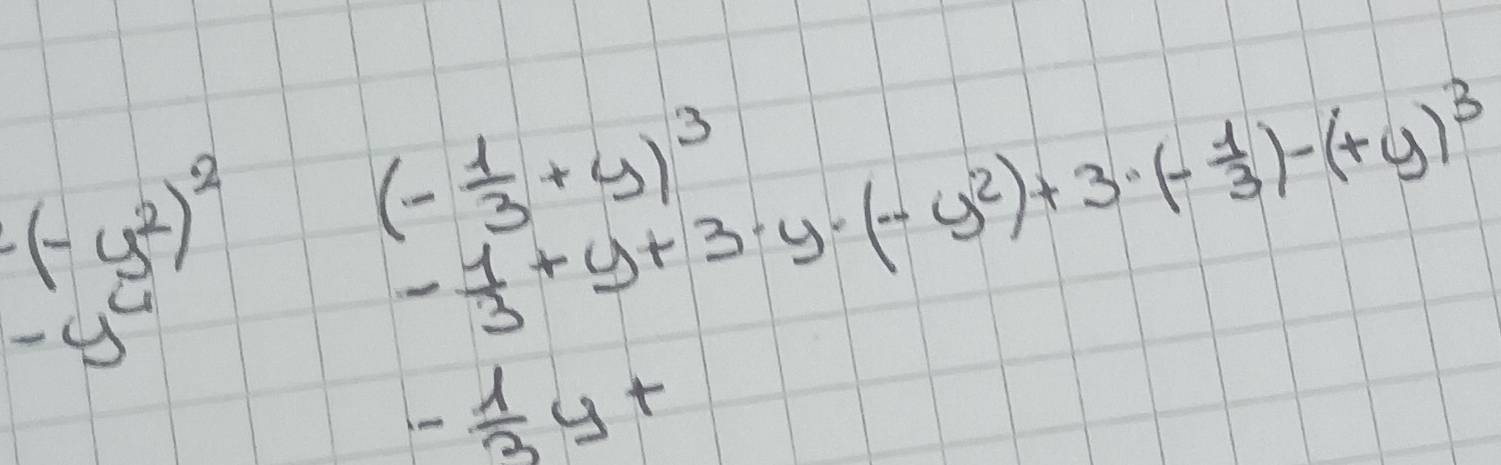 -(-y²)²
-y⁴
(-1/3+y)³
-1/3+y+3·y·(-y²)+3·(-1/3)-(+y)³
-1/3y+